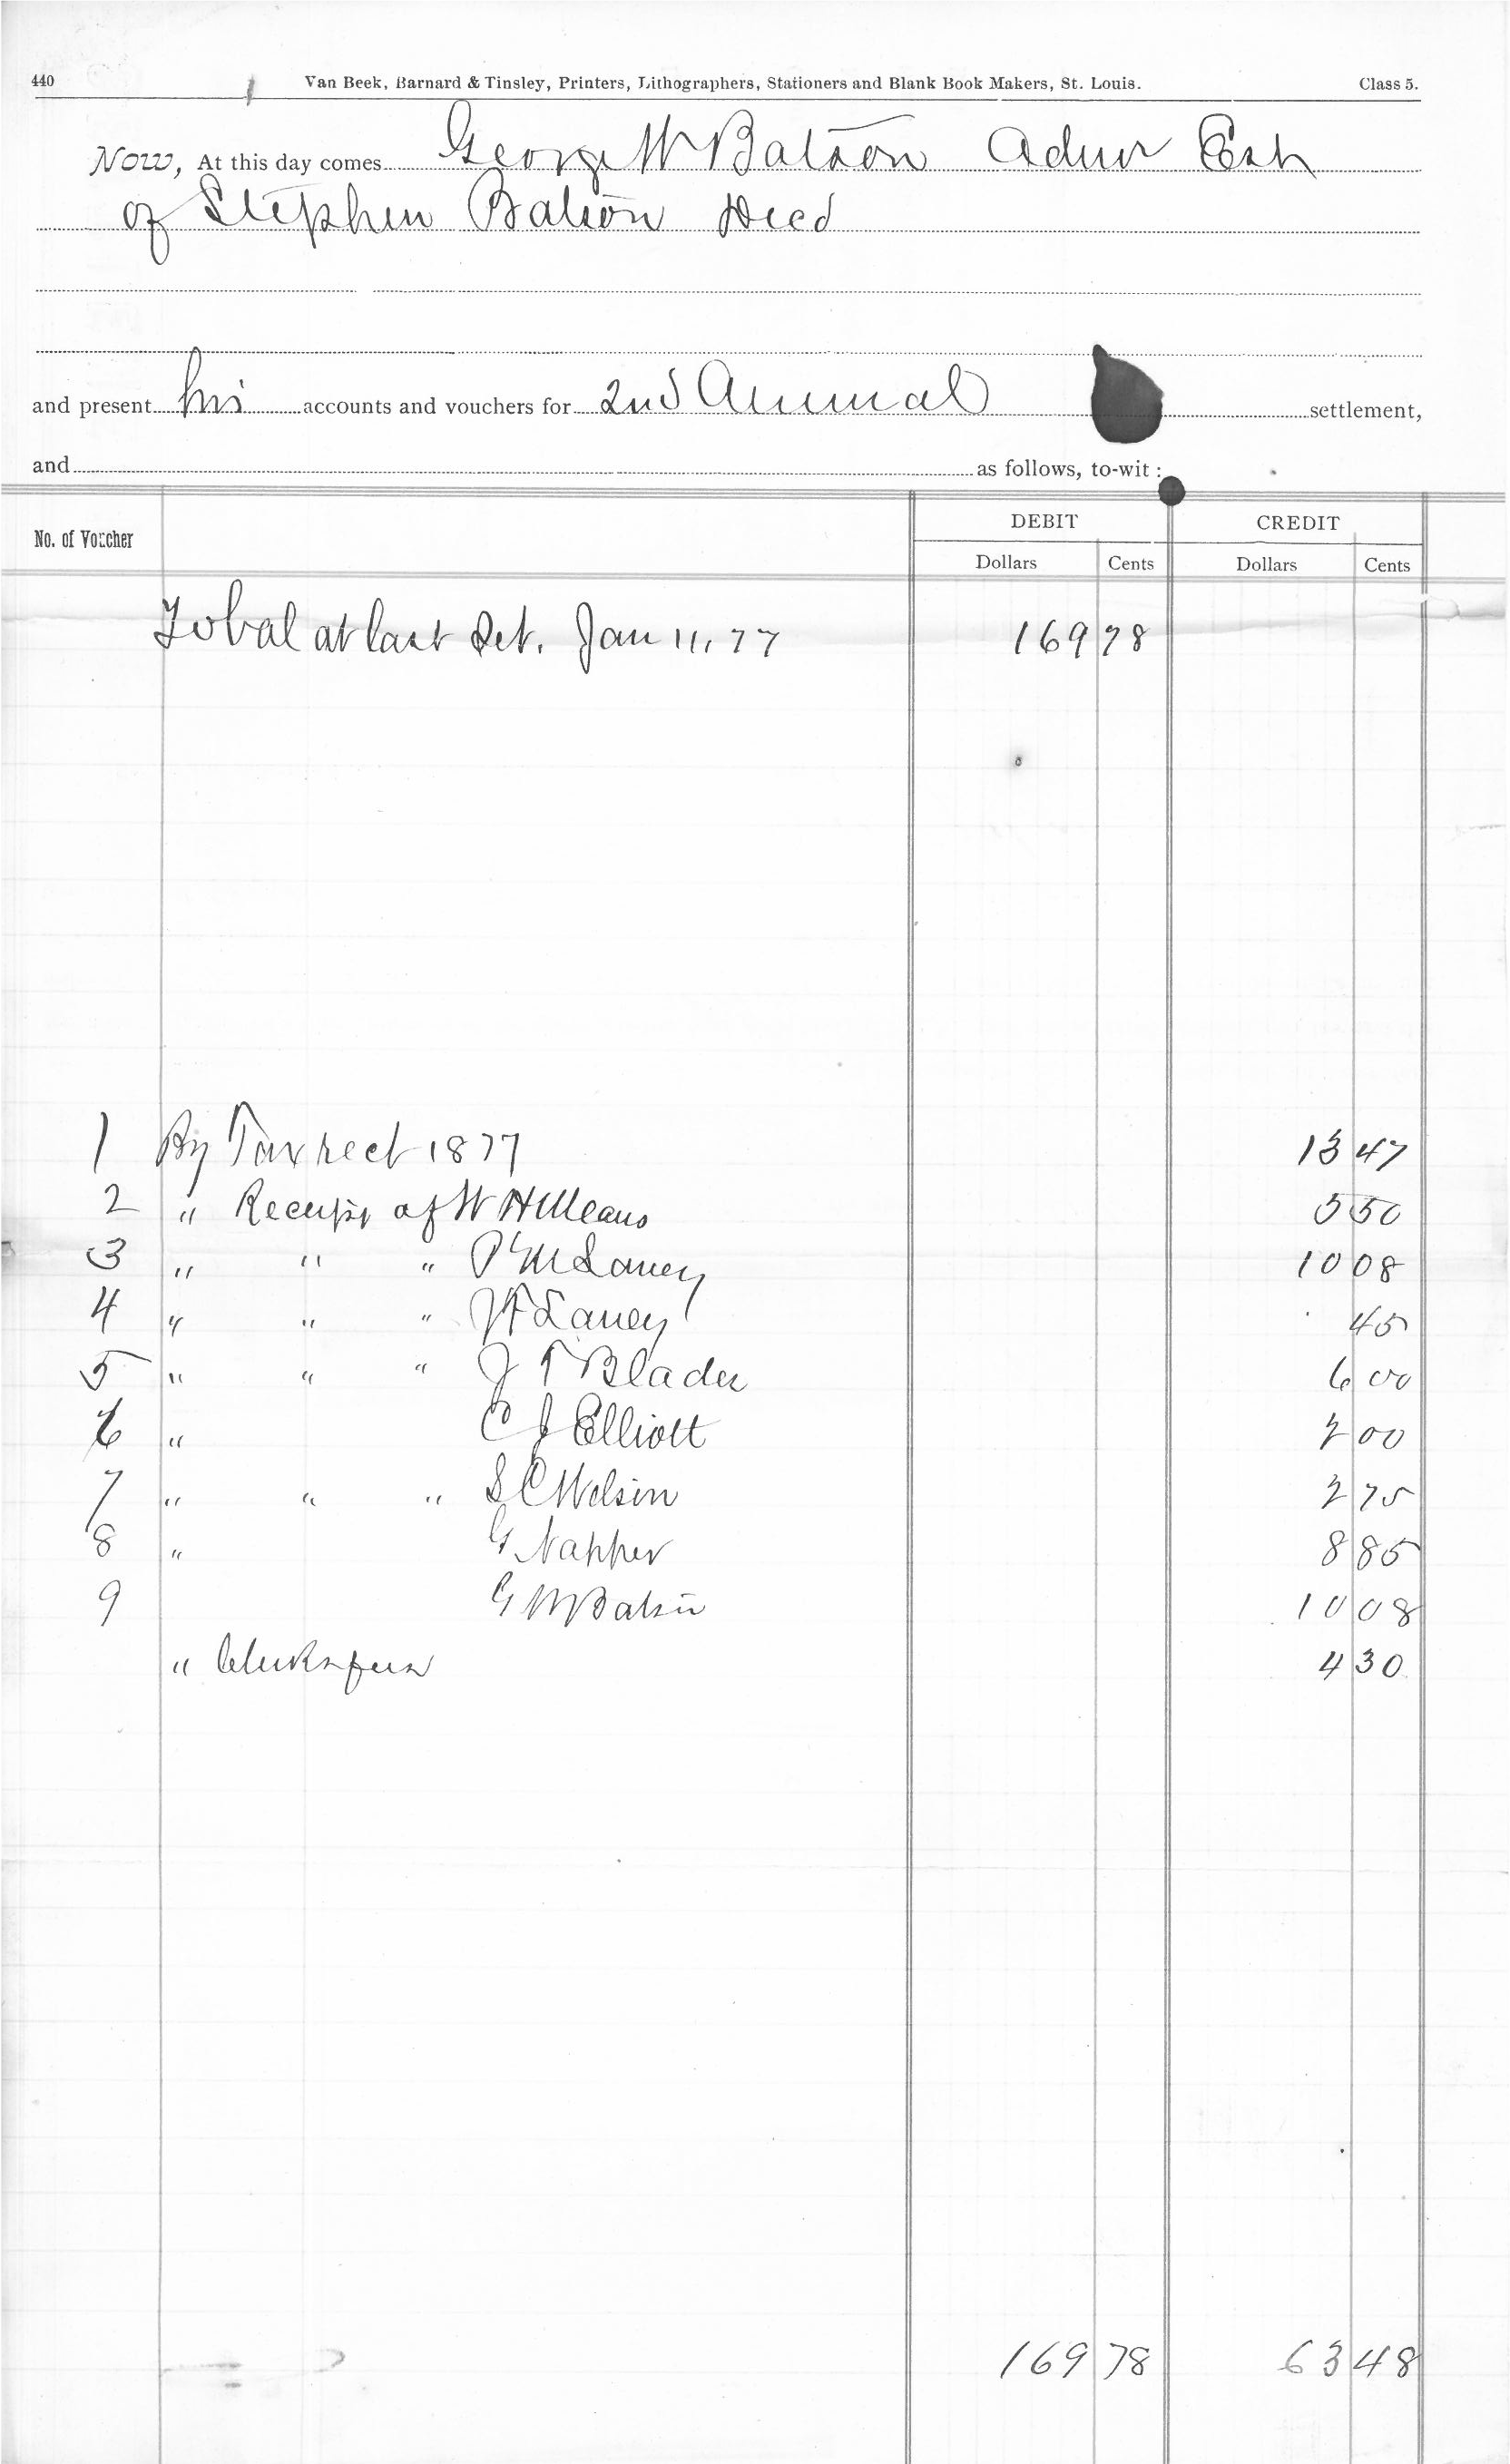 440 Van Beek, Barnard & Tinsley, Printers, Lithographers, Stationers and Blank Book Makers, St. Louis. Class 5.
Now, At this day comes George W Batson Admr Est
of Stephen Batson Decd
and present his accounts and vouchers for 2nd Annual settlement,
and as follows, to-wit:
No. of Voucher DEBIT CREDIT
Dollars Cents Dollars Cents
To bal at last Set. Jan 11, 77 169 78
1 By Tax rect 1877 13 47
2 " Receipts of W H Means 5 50
3 " " " P M Laney 10 08
4 " " " J F Laney 45
5 " " " J T Blader 6 00
6 " C J Elliott 2 00
7 " " " S C Wilson 2 75
8 " G Napper 8 85
9 G W Batson 10 08
" Clerks fees 4 30
169 78 63 48